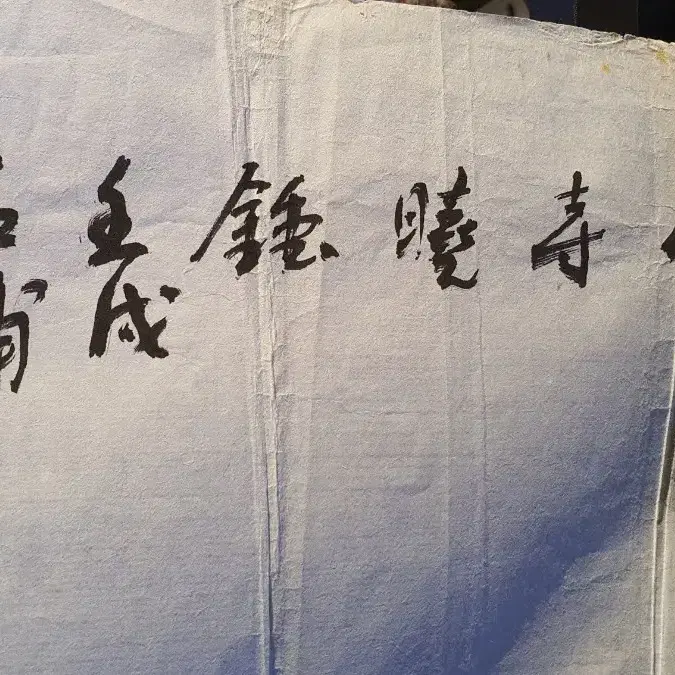 寺曉鍾
壬戌